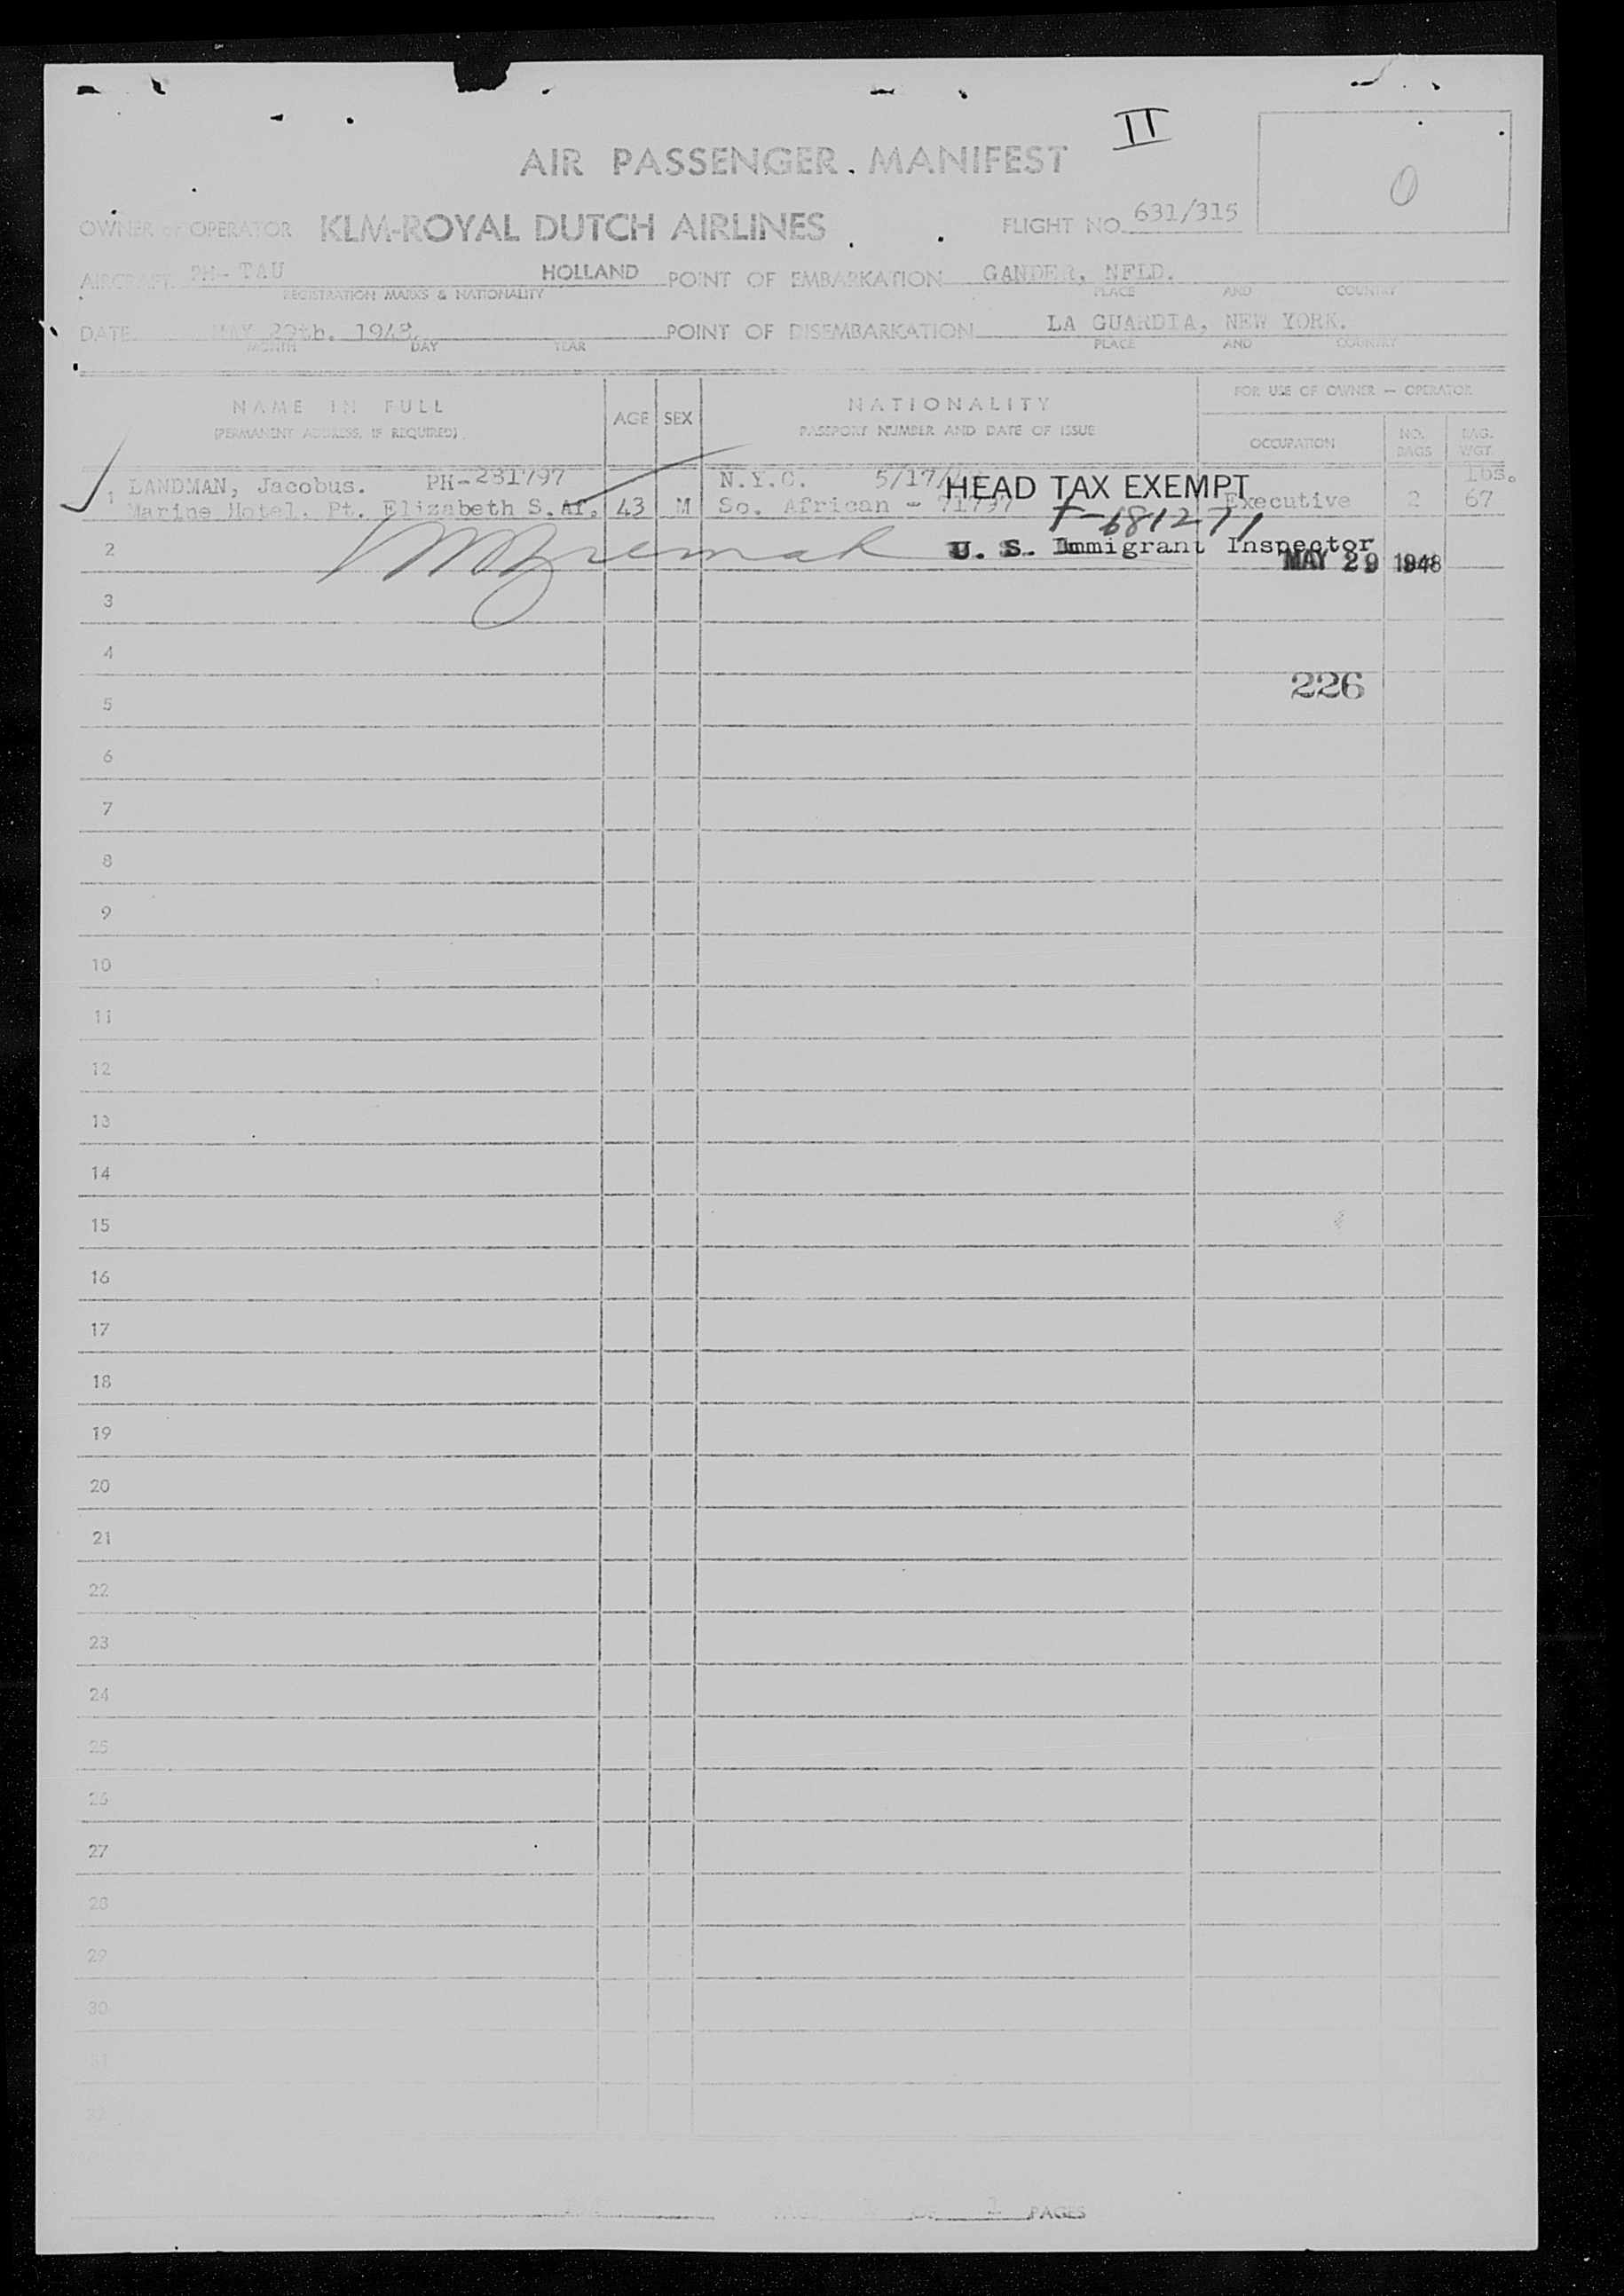 II
AIR PASSENGER MANIFEST
0
OWNER or OPERATOR KLM-ROYAL DUTCH AIRLINES FLIGHT NO. 631/315
AIRCRAFT PH- TAU HOLLAND POINT OF EMBARKATION GANDER, NFLD.
REGISTRATION MARKS & NATIONALITY PLACE AND COUNTRY
DATE MAY 29th. 1948. POINT OF DISEMBARKATION LA GUARDIA, NEW YORK.
MONTH DAY YEAR PLACE AND COUNTRY
NAME IN FULL AGE SEX NATIONALITY FOR USE OF OWNER — OPERATOR
(PERMANENT ADDRESS, IF REQUIRED) PASSPORT NUMBER AND DATE OF ISSUE OCCUPATION NO. BAGS BAG. WGT.
1 LANDMAN, Jacobus. PH-231797 N.Y.C. 5/17/ lbs.
Marine Hotel. Pt. Elizabeth S.Af. 43 M So. African - 71797 Executive 2 67
HEAD TAX EXEMPT
T-681271
2 U. S. Immigrant Inspector
MAY 29 1948
3
4
226
5
6
7
8
9
10
11
12
13
14
15
16
17
18
19
20
21
22
23
24
25
26
27
28
29
30
31
32
OF 2 PAGES